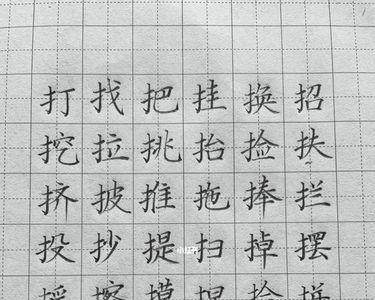 打找把挂换招
挖拉挑抬捡扶
挤披推拖捧拦
投抄提扫掉摆
小红书